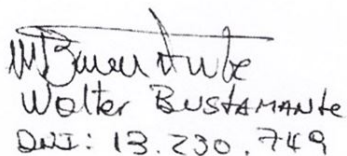 Walter BUSTAMANTE
DNI: 13.230.749